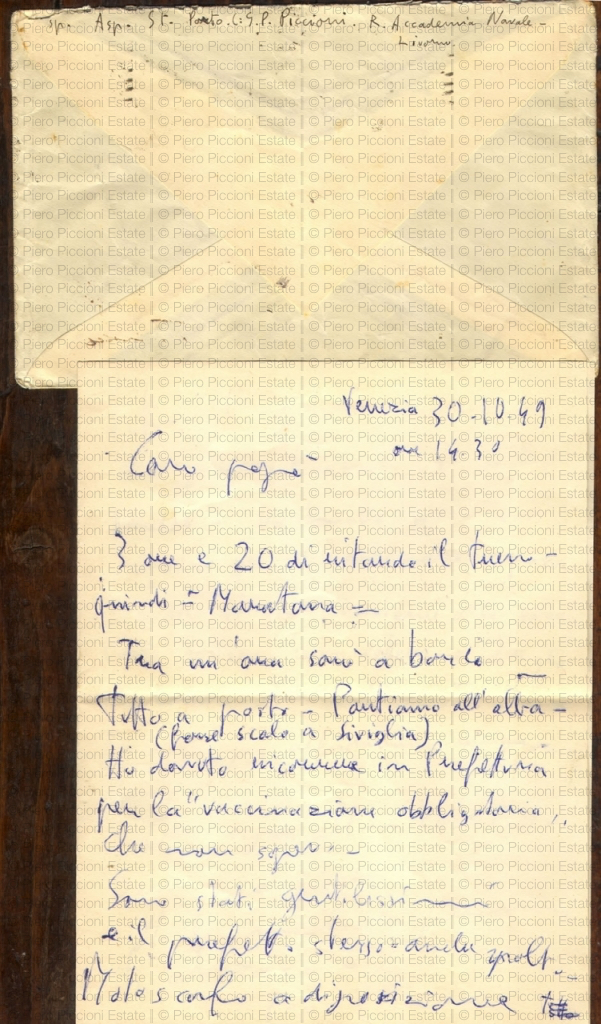 sp. Asp. St. Porto. C.G.P. Piccioni. R. Accademia Navale -
Livorno
© Piero Piccioni Estate
Venezia 30-10-49
ore 14.30
Caro papà
3 ore e 20 di ritardo il treno -
quindi = Maratona =
Tra un'ora sarò a bordo
Tutto a posto - Partiamo all'alba -
(forse scalo a Siviglia)
Ho dovuto in Prefettura
per la "vaccinazione obbligatoria,,
che non
Sono stati gentilissimi
e il stesso - anche
Motoscafo a disposizione